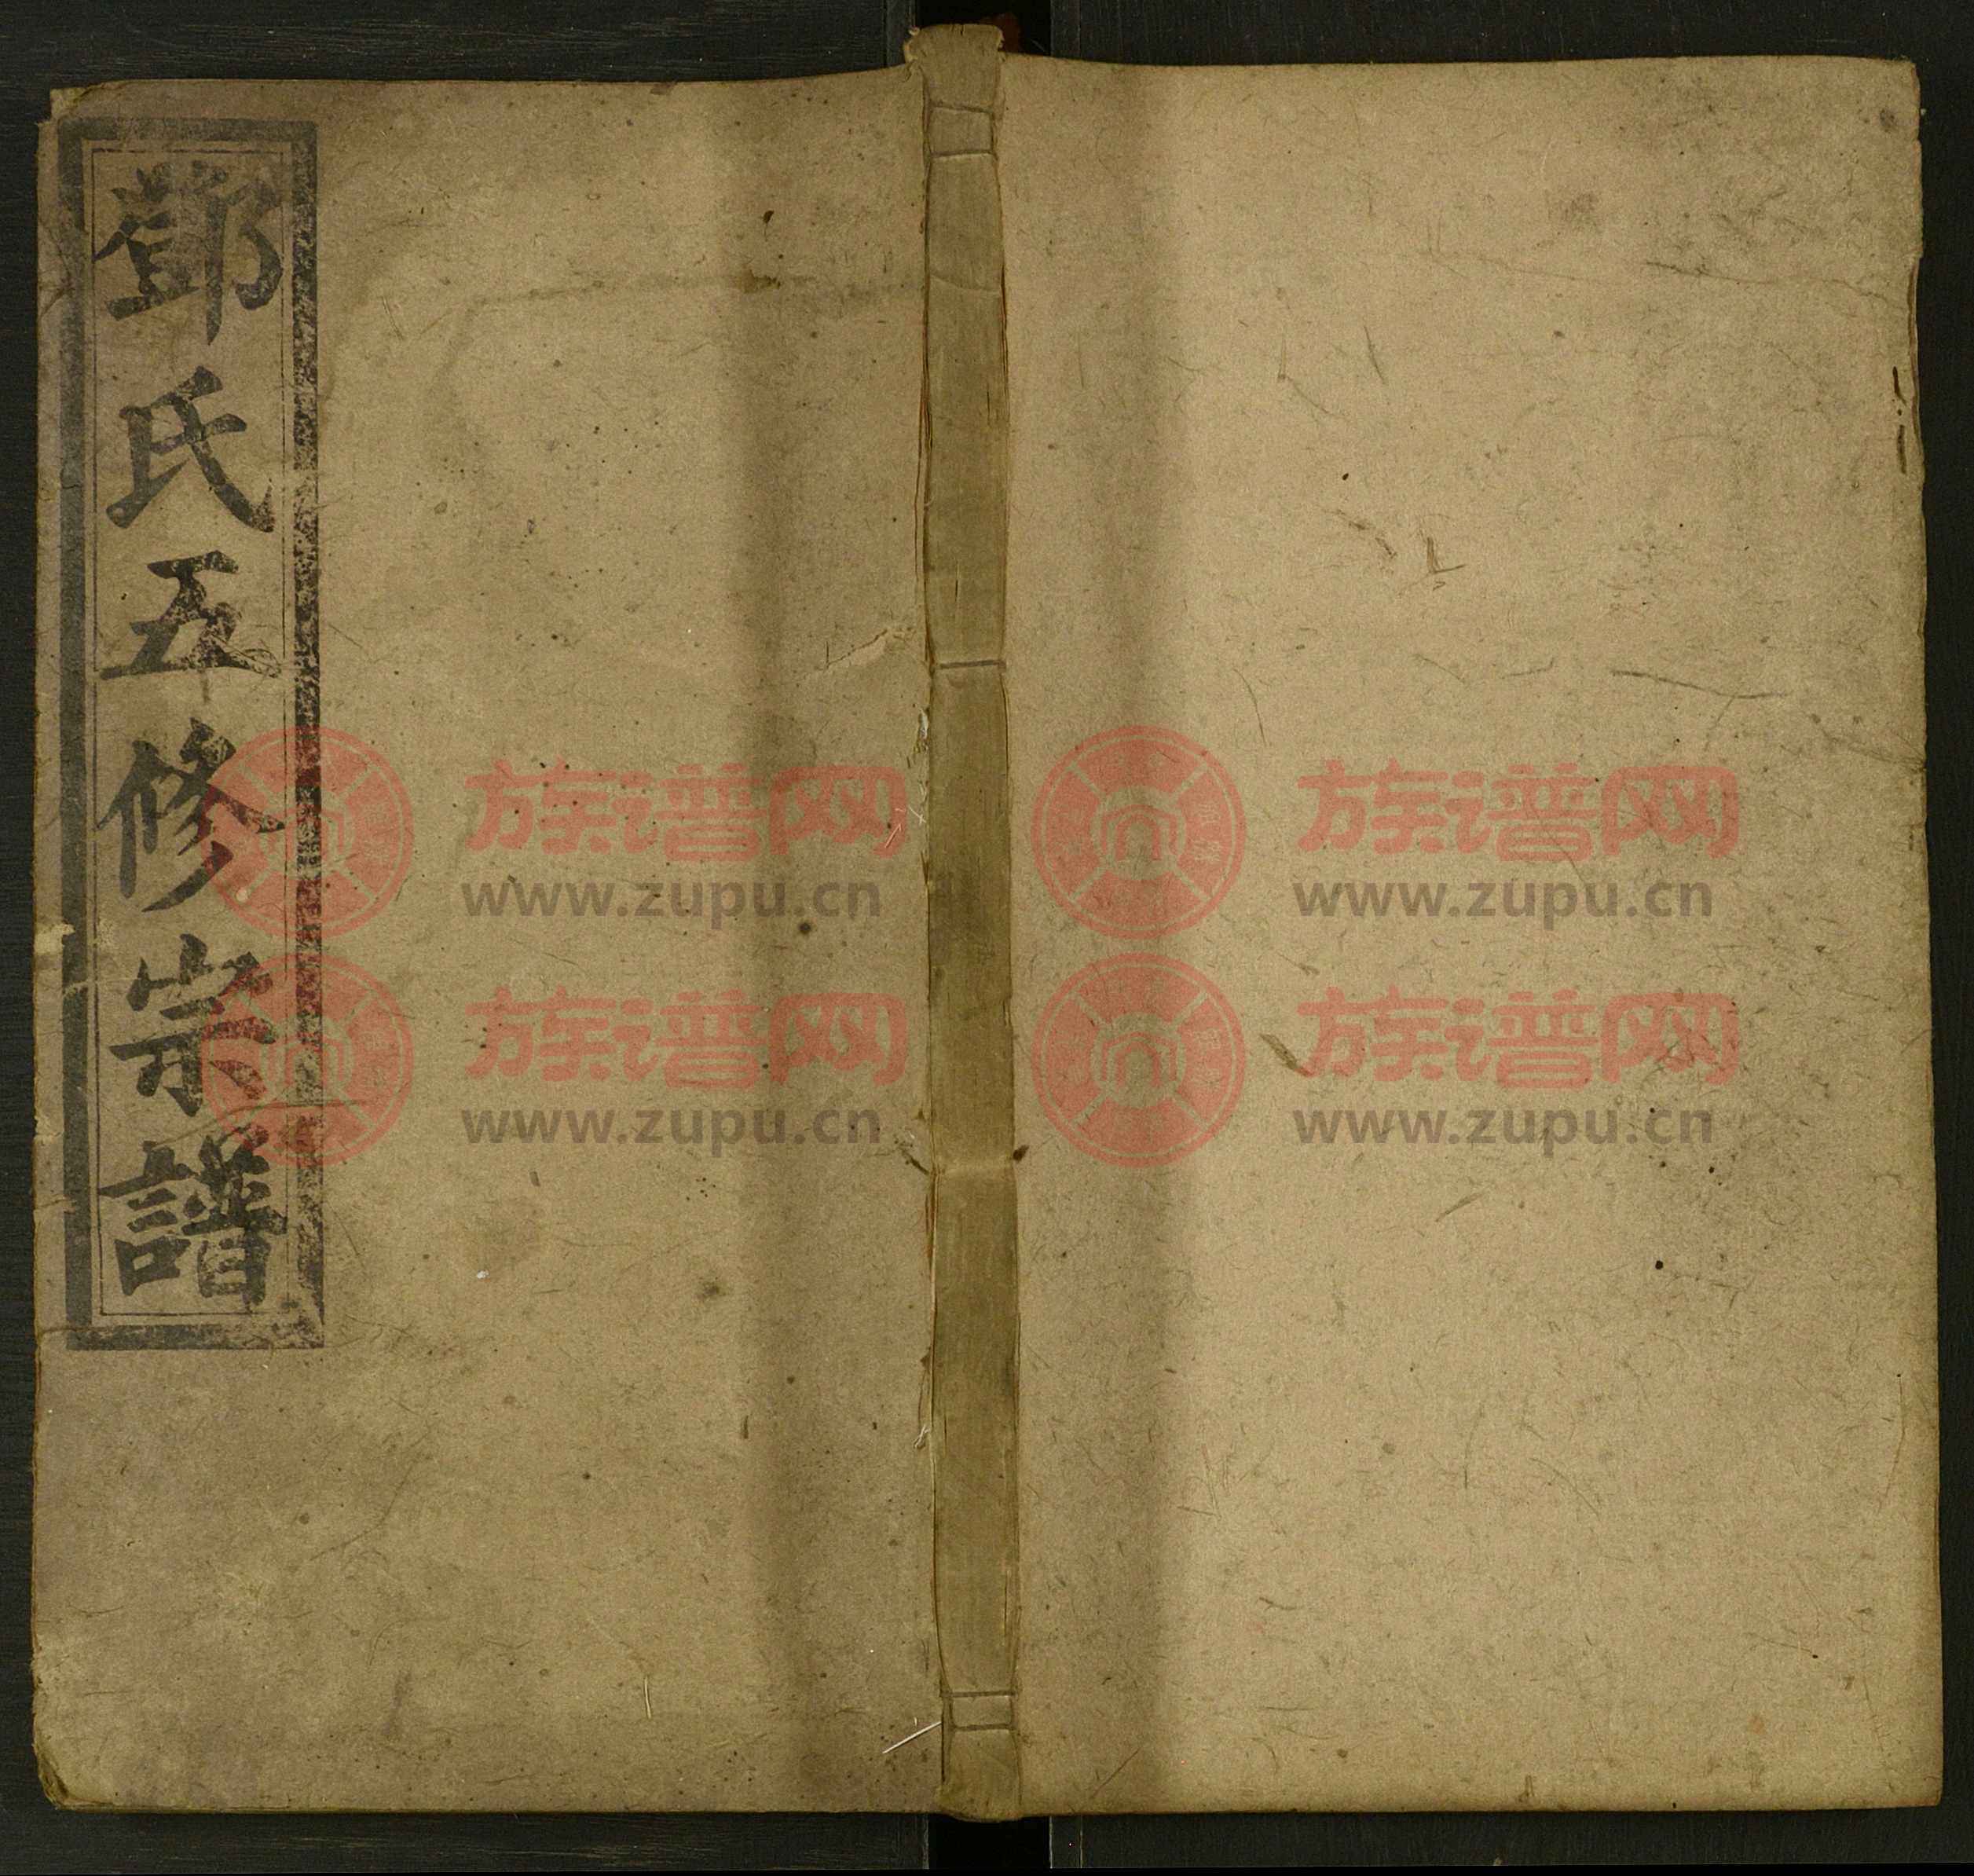 鄧氏五修宗譜
族谱网
www.zupu.cn
族谱网
www.zupu.cn
族谱网
www.zupu.cn
族谱网
www.zupu.cn